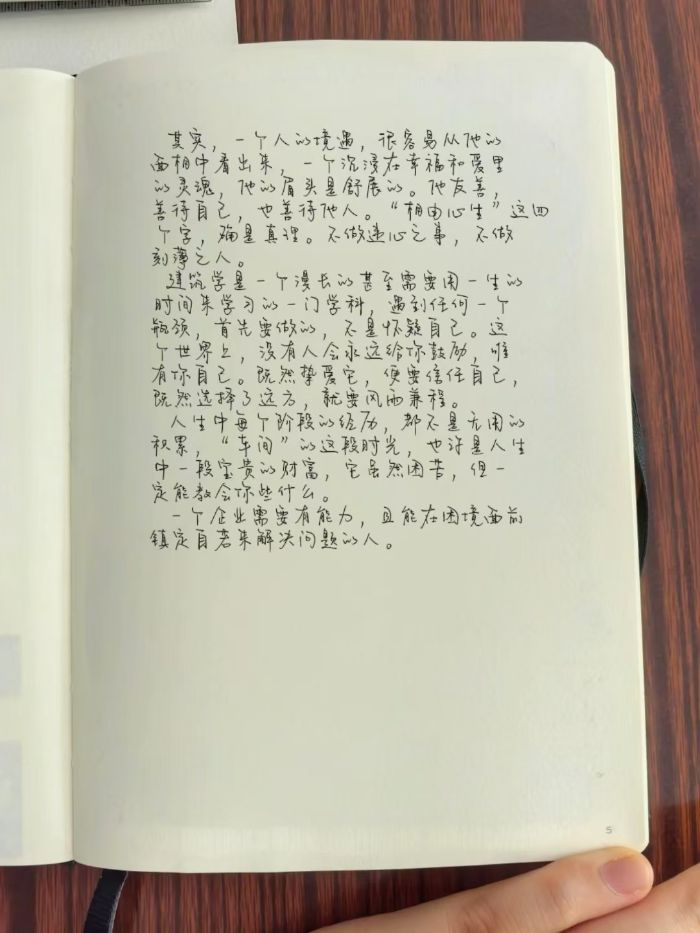 其实，一个人的境遇，很容易从他的
面相中看出来，一个沉浸在幸福和爱里
的灵魂，他的眉头是舒展的。他友善，
善待自己，也善待他人。“相由心生”这四
个字，确是真理。不做违心之事，不做
刻薄之人。
建筑学是一个漫长的甚至需要用一生的
时间来学习的一门学科，遇到任何一个
瓶颈，首先要做的，不是怀疑自己。这
个世界上，没有人会永远给你鼓励，唯
有你自己。既然挚爱它，便要信任自己，
既然选择了远方，就要风雨兼程。
人生中每个阶段的经历，都不是无用的
积累，“车间”的这段时光，也许是人生
中一段宝贵的财富，它虽然困苦，但一
定能教会你些什么。
一个企业需要有能力，且能在困境面前
镇定自若来解决问题的人。
5